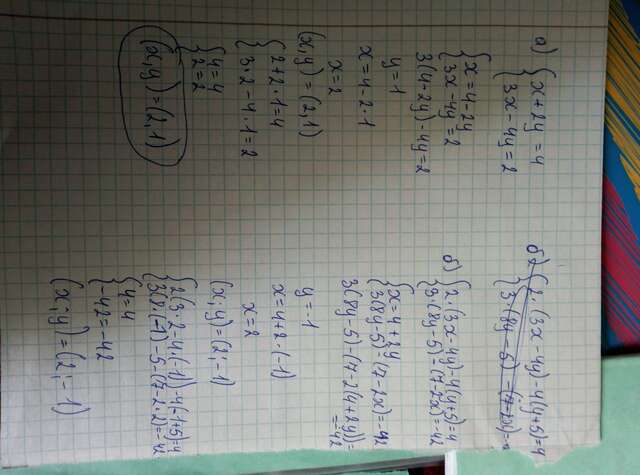 а) { x + 2y = 4
3x - 4y = 2
{ x = 4 - 2y
3x - 4y = 2
3(4 - 2y) - 4y = 2
y = 1
x = 4 - 2 · 1
x = 2
(x, y) = (2, 1)
{ 2 + 2 · 1 = 4
3 · 2 - 4 · 1 = 2
{ 4 = 4
2 = 2
(x, y) = (2, 1)
б) { 2 · (3x - 4y) - 4(y + 5) = 4
{ 3 · (8y - 5) - (7 - 2x) =
б) { 2 · (3x - 4y) - 4(y + 5) = 4
3 · (8y - 5) - (7 - 2x) = -42
{ x = 4 + 2y
3(8y - 5) - (7 - 2x) = -42
3(8y - 5) - (7 - 2(4 + 2y)) = -42
y = -1
x = 4 + 2 · (-1)
x = 2
(x; y) = (2; -1)
{ 2(3 · 2 - 4 · (-1)) - 4(-1 + 5) = 4
3(8 · (-1) - 5 - (7 - 2 · 2) = -42
{ 4 = 4
-42 = -42
(x; y) = (2; -1)